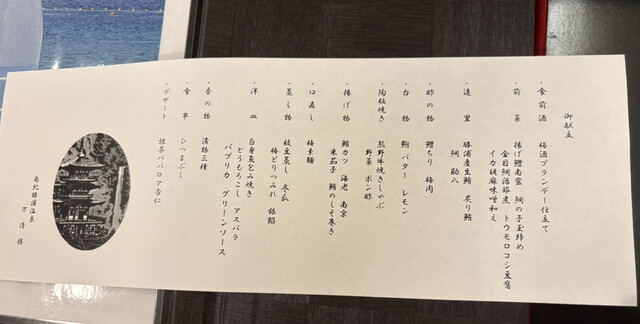 御献立
・食前酒 梅酒ブランデー仕立て
・前菜 揚げ鱧南蛮 鯛の子玉締め
金目鯛治部煮 トウモロコシ豆腐
イカ胡麻味噌和え
・造里 勝浦産生鮪 炙り鯖
鯛 勘八
・酢の物 鱧ちり 梅肉
・台物 鮑 バター レモン
・陶板焼き 熊野牛焼きしゃぶ
野菜 ポン酢
・揚げ物 鯛カツ 海老 南京
米茄子 鮪のしそ巻き
・口直し 梅素麺
・蒸し物 枝豆蒸し 冬瓜
梅どりつみれ 銀餡
・洋皿 白身魚包み焼き
とうもろこし アスパラ
パプリカ グリーンソース
・香の物 漬物三種
・食事 ひつまぶし
・デザート 抹茶ババロア杏仁
南紀勝浦温泉
万清楼